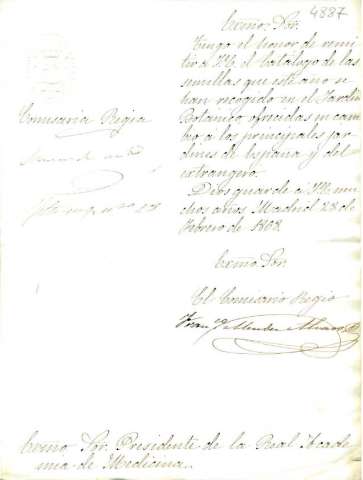 4887
Excmo. Sor.
Tengo el honor de remi
tir á V.E. el Catálogo de las
semillas que este año se
han recogido en el Jardin
Botánico ofrecidas en cam
bio á los principales jar
dines de España y del
extrangero.
Dios guarde á V.E. mu
chos años Madrid 28 de
Febrero de 1868.
Excmo. Sor.
El Comisario Regio
Comisaria Regia
Excmo Sor. Presidente de la Real Acade
mia de Medicina.